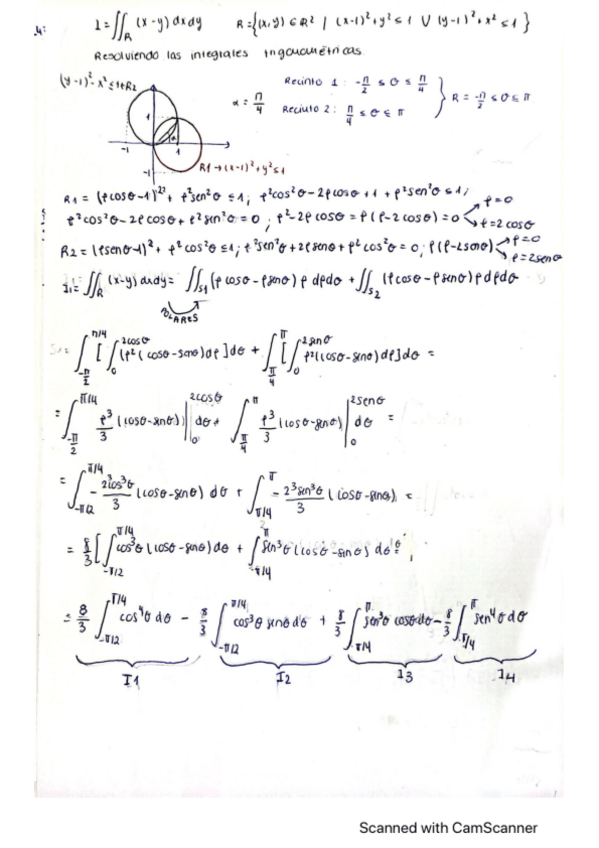 4:
I = ∬_R (x-y) dxdy R = {(x,y) ∈ R² / (x-1)²+y² ≤ 1 ∨ (y-1)²+x² ≤ 1}
Resolviendo las integrales trigonométricas
(y-1)²-x² ≤ 1→R2
Recinto 1: -π/2 ≤ θ ≤ π/4
α = π/4
Recinto 2: π/4 ≤ θ ≤ π
R = -π/2 ≤ θ ≤ π
1
α
-1
1
-1
R1 → (x-1)²+y² ≤ 1
R1 = (ρcosθ-1)²+ ρ²sen²θ ≤ 1; ρ²cos²θ-2ρcosθ+1+ρ²sen²θ ≤ 1;
ρ=0
ρ²cos²θ-2ρcosθ+ρ²sen²θ = 0; ρ²-2ρcosθ = ρ(ρ-2cosθ) = 0
ρ=2cosθ
R2 = (ρsenθ-1)²+ ρ²cos²θ ≤ 1; ρ²sen²θ+2ρsenθ+ρ²cos²θ = 0; ρ(ρ-2senθ)
ρ=0
ρ=2senθ
I1 = ∬_R (x-y) dxdy = ∬_S1 (ρcosθ-ρsenθ) ρ dρdθ + ∬_S2 (ρcosθ-ρsenθ) ρ dρdθ
POLARES
∫_{-π/2}^{π/4} [∫_0^{2cosθ} (ρ²(cosθ-senθ)dρ] dθ + ∫_{π/4}^{π} [∫_0^{2senθ} ρ²(cosθ-senθ)dρ] dθ =
= ∫_{-π/2}^{π/4} ρ³/3 (cosθ-senθ)) |_0^{2cosθ} dθ + ∫_{π/4}^{π} ρ³/3 (cosθ-senθ) |_0^{2senθ} dθ =
= ∫_{-π/2}^{π/4} - 2³cos³θ/3 (cosθ-senθ) dθ + ∫_{π/4}^{π} - 2³sen³θ/3 (cosθ-senθ) =
= 8/3 [∫_{-π/2}^{π/4} cos³θ (cosθ-senθ) dθ + ∫_{π/4}^{π} sen³θ (cosθ-senθ) dθ =
= 8/3 ∫_{-π/2}^{π/4} cos⁴θ dθ - 8/3 ∫_{-π/2}^{π/4} cos³θ senθ dθ + 8/3 ∫_{π/4}^{π} sen³θ cosθ dθ - 8/3 ∫_{π/4}^{π} sen⁴θ dθ
I1 I2 I3 I4
Scanned with CamScanner